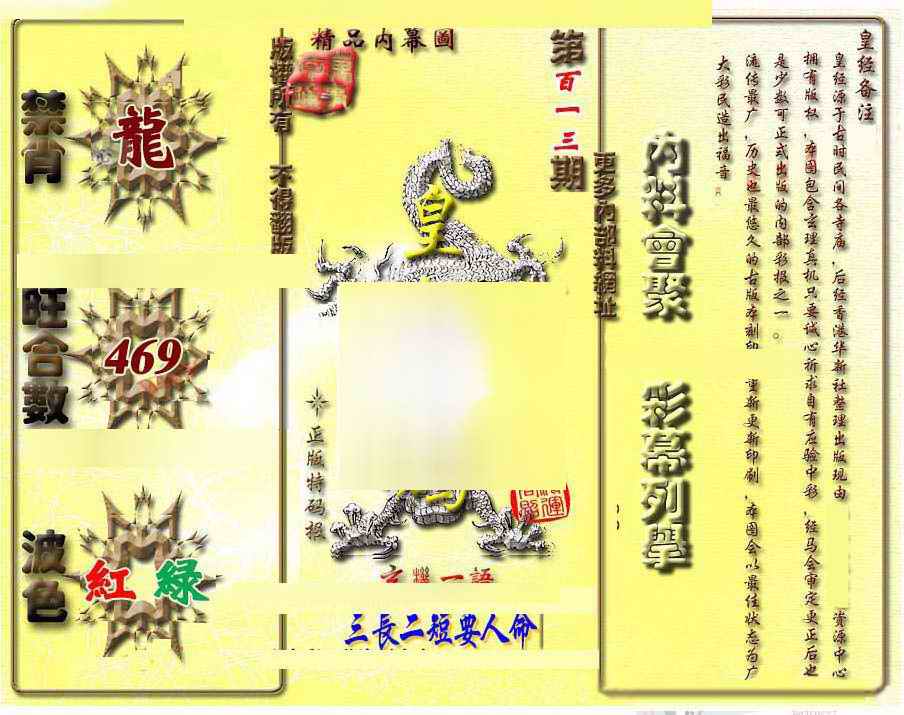 精品內幕圖
版權所有
不得翻版
第百一三期
禁肖
龍
旺合數
469
波色
紅 綠
皇
正版特码报
三長二短要人命
更多內部料網址
內料會聚
彩幕列舉
皇经备注
皇经源于古时民间各寺庙，后经香港华新社整理出版现由
资源中心
拥有版权，本图包含玄理真机只要诚心祈求自有应验中彩，经马会审定更正后也
是少数可正式出版的内部彩报之一。
流传最广，历史也最悠久的古版本刻印
重新更新印刷，本图会以最佳状态为广
大彩民造出福音